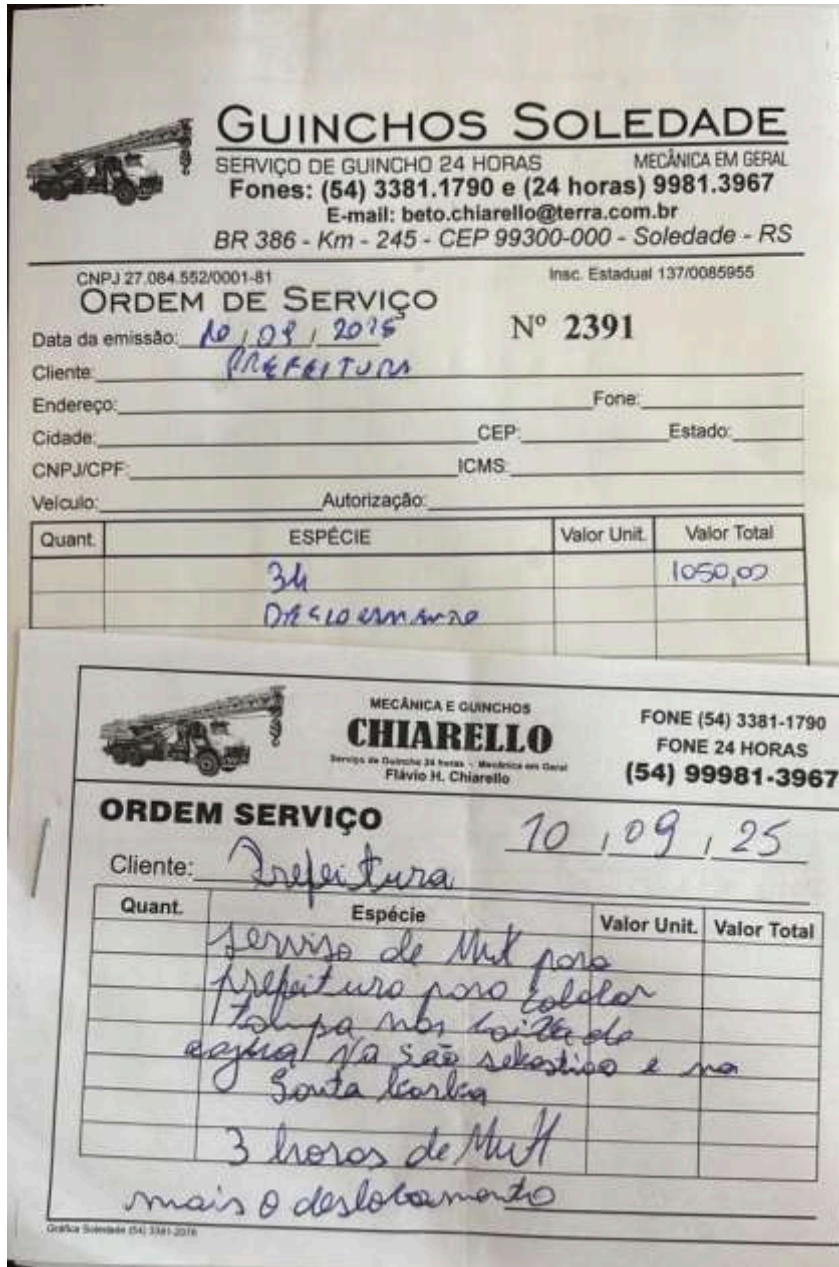 GUINCHOS SOLEDADE
SERVIÇO DE GUINCHO 24 HORAS MECÂNICA EM GERAL
Fones: (54) 3381.1790 e (24 horas) 9981.3967
E-mail: beto.chiarello@terra.com.br
BR 386 - Km - 245 - CEP 99300-000 - Soledade - RS
CNPJ 27.084.552/0001-81 Insc. Estadual 137/0085955
ORDEM DE SERVIÇO
Nº 2391
Data da emissão: 10 / 09 / 2025
Cliente: PREFEITURA
Endereço: Fone:
Cidade: CEP: Estado:
CNPJ/CPF: ICMS:
Veículo: Autorização:
Quant. ESPÉCIE Valor Unit. Valor Total
3h 1050,00
MECÂNICA E GUINCHOS
CHIARELLO
Serviço de Guincho 24 horas - Mecânica em Geral
Flávio H. Chiarello
FONE (54) 3381-1790
FONE 24 HORAS
(54) 99981-3967
ORDEM SERVIÇO
10 / 09 / 25
Cliente: Prefeitura
Quant. Espécie Valor Unit. Valor Total
serviso de para
prefeitura para
tampa nas de
na são sebastiao e na
Santa
3 horas de
mais o deslocamento
Gráfica Soledade (54) 3381-2076